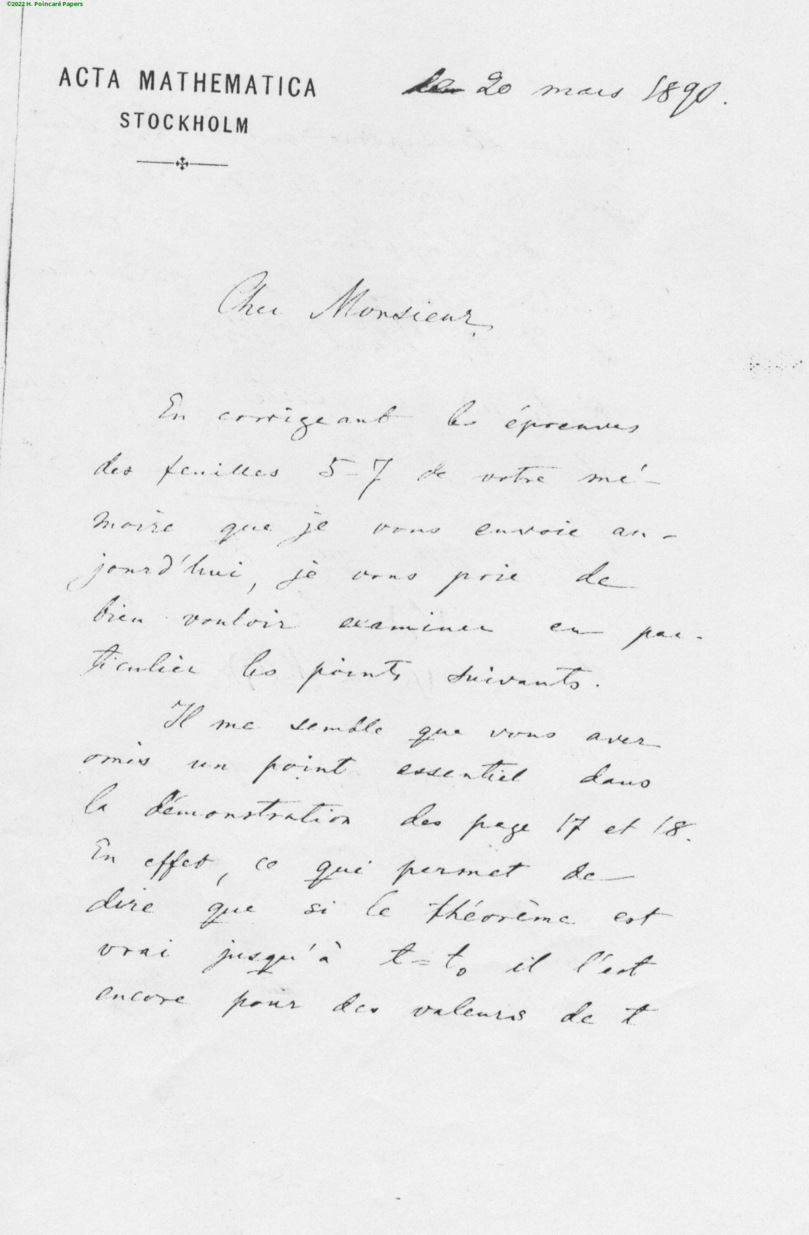 ©2022 H. Poincaré Papers
ACTA MATHEMATICA
STOCKHOLM
20 mars 1890.
Cher Monsieur,
En corrigeant les épreuves
des feuilles 5-7 de votre mé-
moire que je vous envoie au-
jourd'hui, je vous prie de
bien vouloir examiner en par-
ticulier les points suivants.
Il me semble que vous avez
omis un point essentiel dans
la démonstration des page 17 et 18.
En effet, ce qui permet de
dire que si le théorème est
vrai jusqu'à t=t₀ il l'est
encore pour des valeurs de t